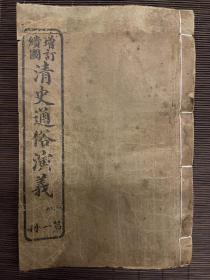 增訂
繪圖
清史通俗演義
第一冊